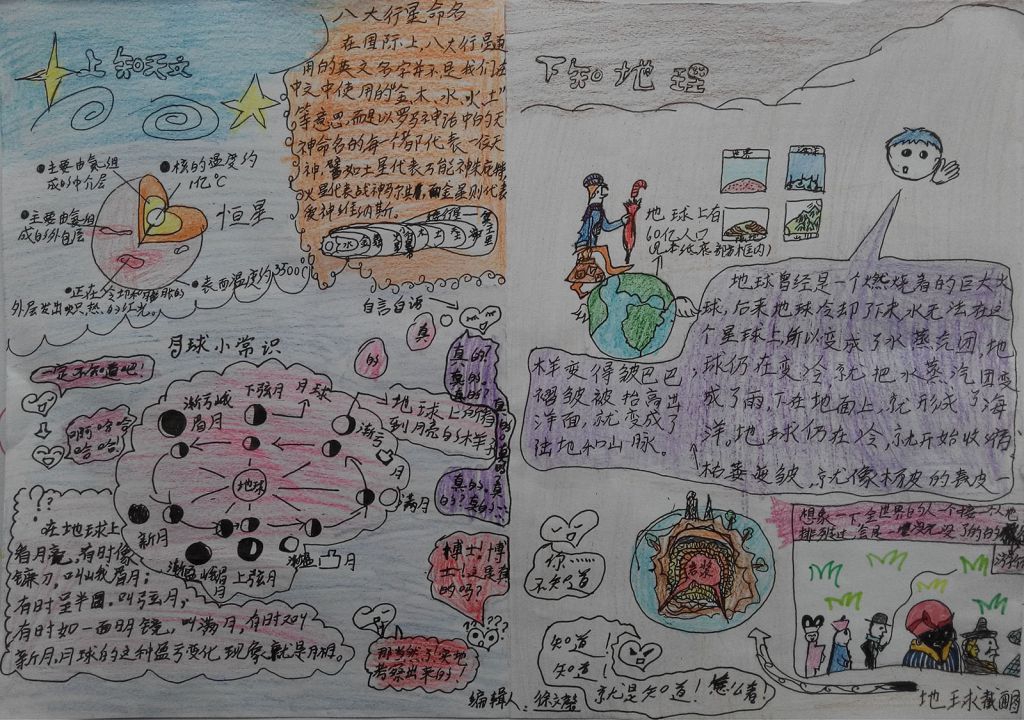 上知天文
八大行星命名
在国际上,八大行星通
用的英文名字并不是我们在
中文中使用的"金、木、水、火、土"
等意思,而是以罗马神话中的天
神命名的每一个都代表一位天
火星代表战神
金星则代表
爱神维纳斯。
主要由氦组
成的中介层
核的温度约
1亿℃
主要由氢组
成的外自层
恒星
表面温度约3500℃
正在冷切和膨胀的
外层发出炽热的红光。
月球小常识
自言自语
真
的
真的
真的
真的
一定不知道吧!
啊哈哈
哈哈!
下弦月
月球
渐亏峨
眉月
渐亏
凸
月
地球上的看
到月亮的样子
地球
满月
新月
渐盈峨眉
月
上弦月
渐盈凸月
在地球上
看月亮,有时像
镰刀,叫峨眉月;
有时呈半圆,叫弦月;
有时如一面明镜,叫满月,有时又叫
新月,月球的这种盈亏变化现象就是月相。
真的
的?真的
博士!博
士!这是真
的吗?
那当然了,实地
考察出来的!
编辑人:徐文馨
下知地理
地球上有
60亿人口
地球曾经是一个燃烧着的巨大火
球,后来地球冷却了下来水无法在这
个星球上所以变成了水蒸汽团,地
球仍在变冷就把水蒸汽团变
成了雨,下在地面上,就形成了海
洋,地球仍在冷,就开始收缩,
枯萎变皱,就像树皮的表皮一
样变得皱巴巴,
褶皱被抬高出
洋面,就变成了
陆地和山脉。
你……
不知道
岩浆
知道
知道
就是知道!怎么着!
想象一下全世界的人一个接一个地
地球截图